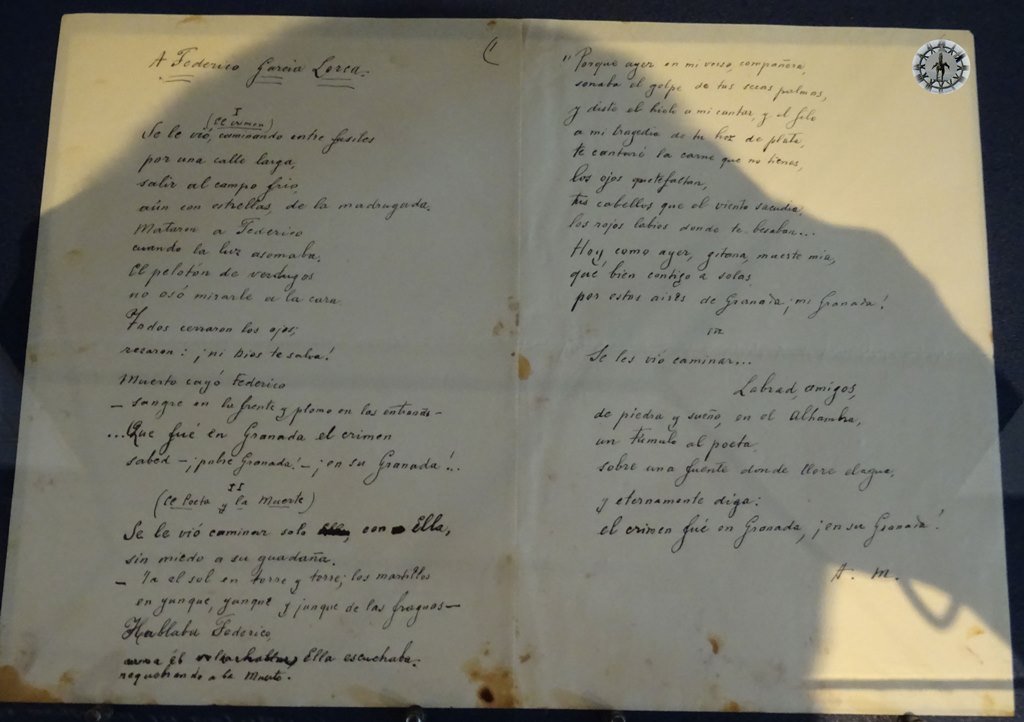 A Federico García Lorca.
I
(El crimen)
Se le vió, caminando entre fusiles
por una calle larga,
salir al campo frío,
aún con estrellas, de la madrugada.
Mataron a Federico
cuando la luz asomaba.
El pelotón de verdugos
no osó mirarle a la cara.
Todos cerraron los ojos;
rezaron: ¡ni Dios te salva!
Muerto cayó Federico
— sangre en la frente y plomo en las entrañas —
...Que fué en Granada el crimen
sabed —¡pobre Granada!— ¡en su Granada!..
II
(El Poeta y la Muerte)
Se le vió caminar solo con Ella,
sin miedo a su guadaña.
— Ya el sol en torre y torre; los martillos
en yunque, yunque y yunque de las fraguas —
Hablaba Federico,
Ella escuchaba.
requebrando a la Muerte.
"Porque ayer en mi verso, compañera,
sonaba el golpe de tus secas palmas,
y diste el hielo a mi cantar, y el filo
a mi tragedia de tu hoz de plata,
te cantaré la carne que no tienes,
los ojos que te faltan,
tus cabellos que el viento sacudía,
los rojos labios donde te besaban...
Hoy como ayer, gitana, muerte mía,
qué bien contigo a solas,
por estos aires de Granada, ¡mi Granada!
Se les vió caminar...
Labrad, amigos,
de piedra y sueño, en el Alhambra,
un túmulo al poeta,
sobre una fuente donde llore el agua,
y eternamente diga:
el crimen fué en Granada, ¡en su Granada!
A. M.